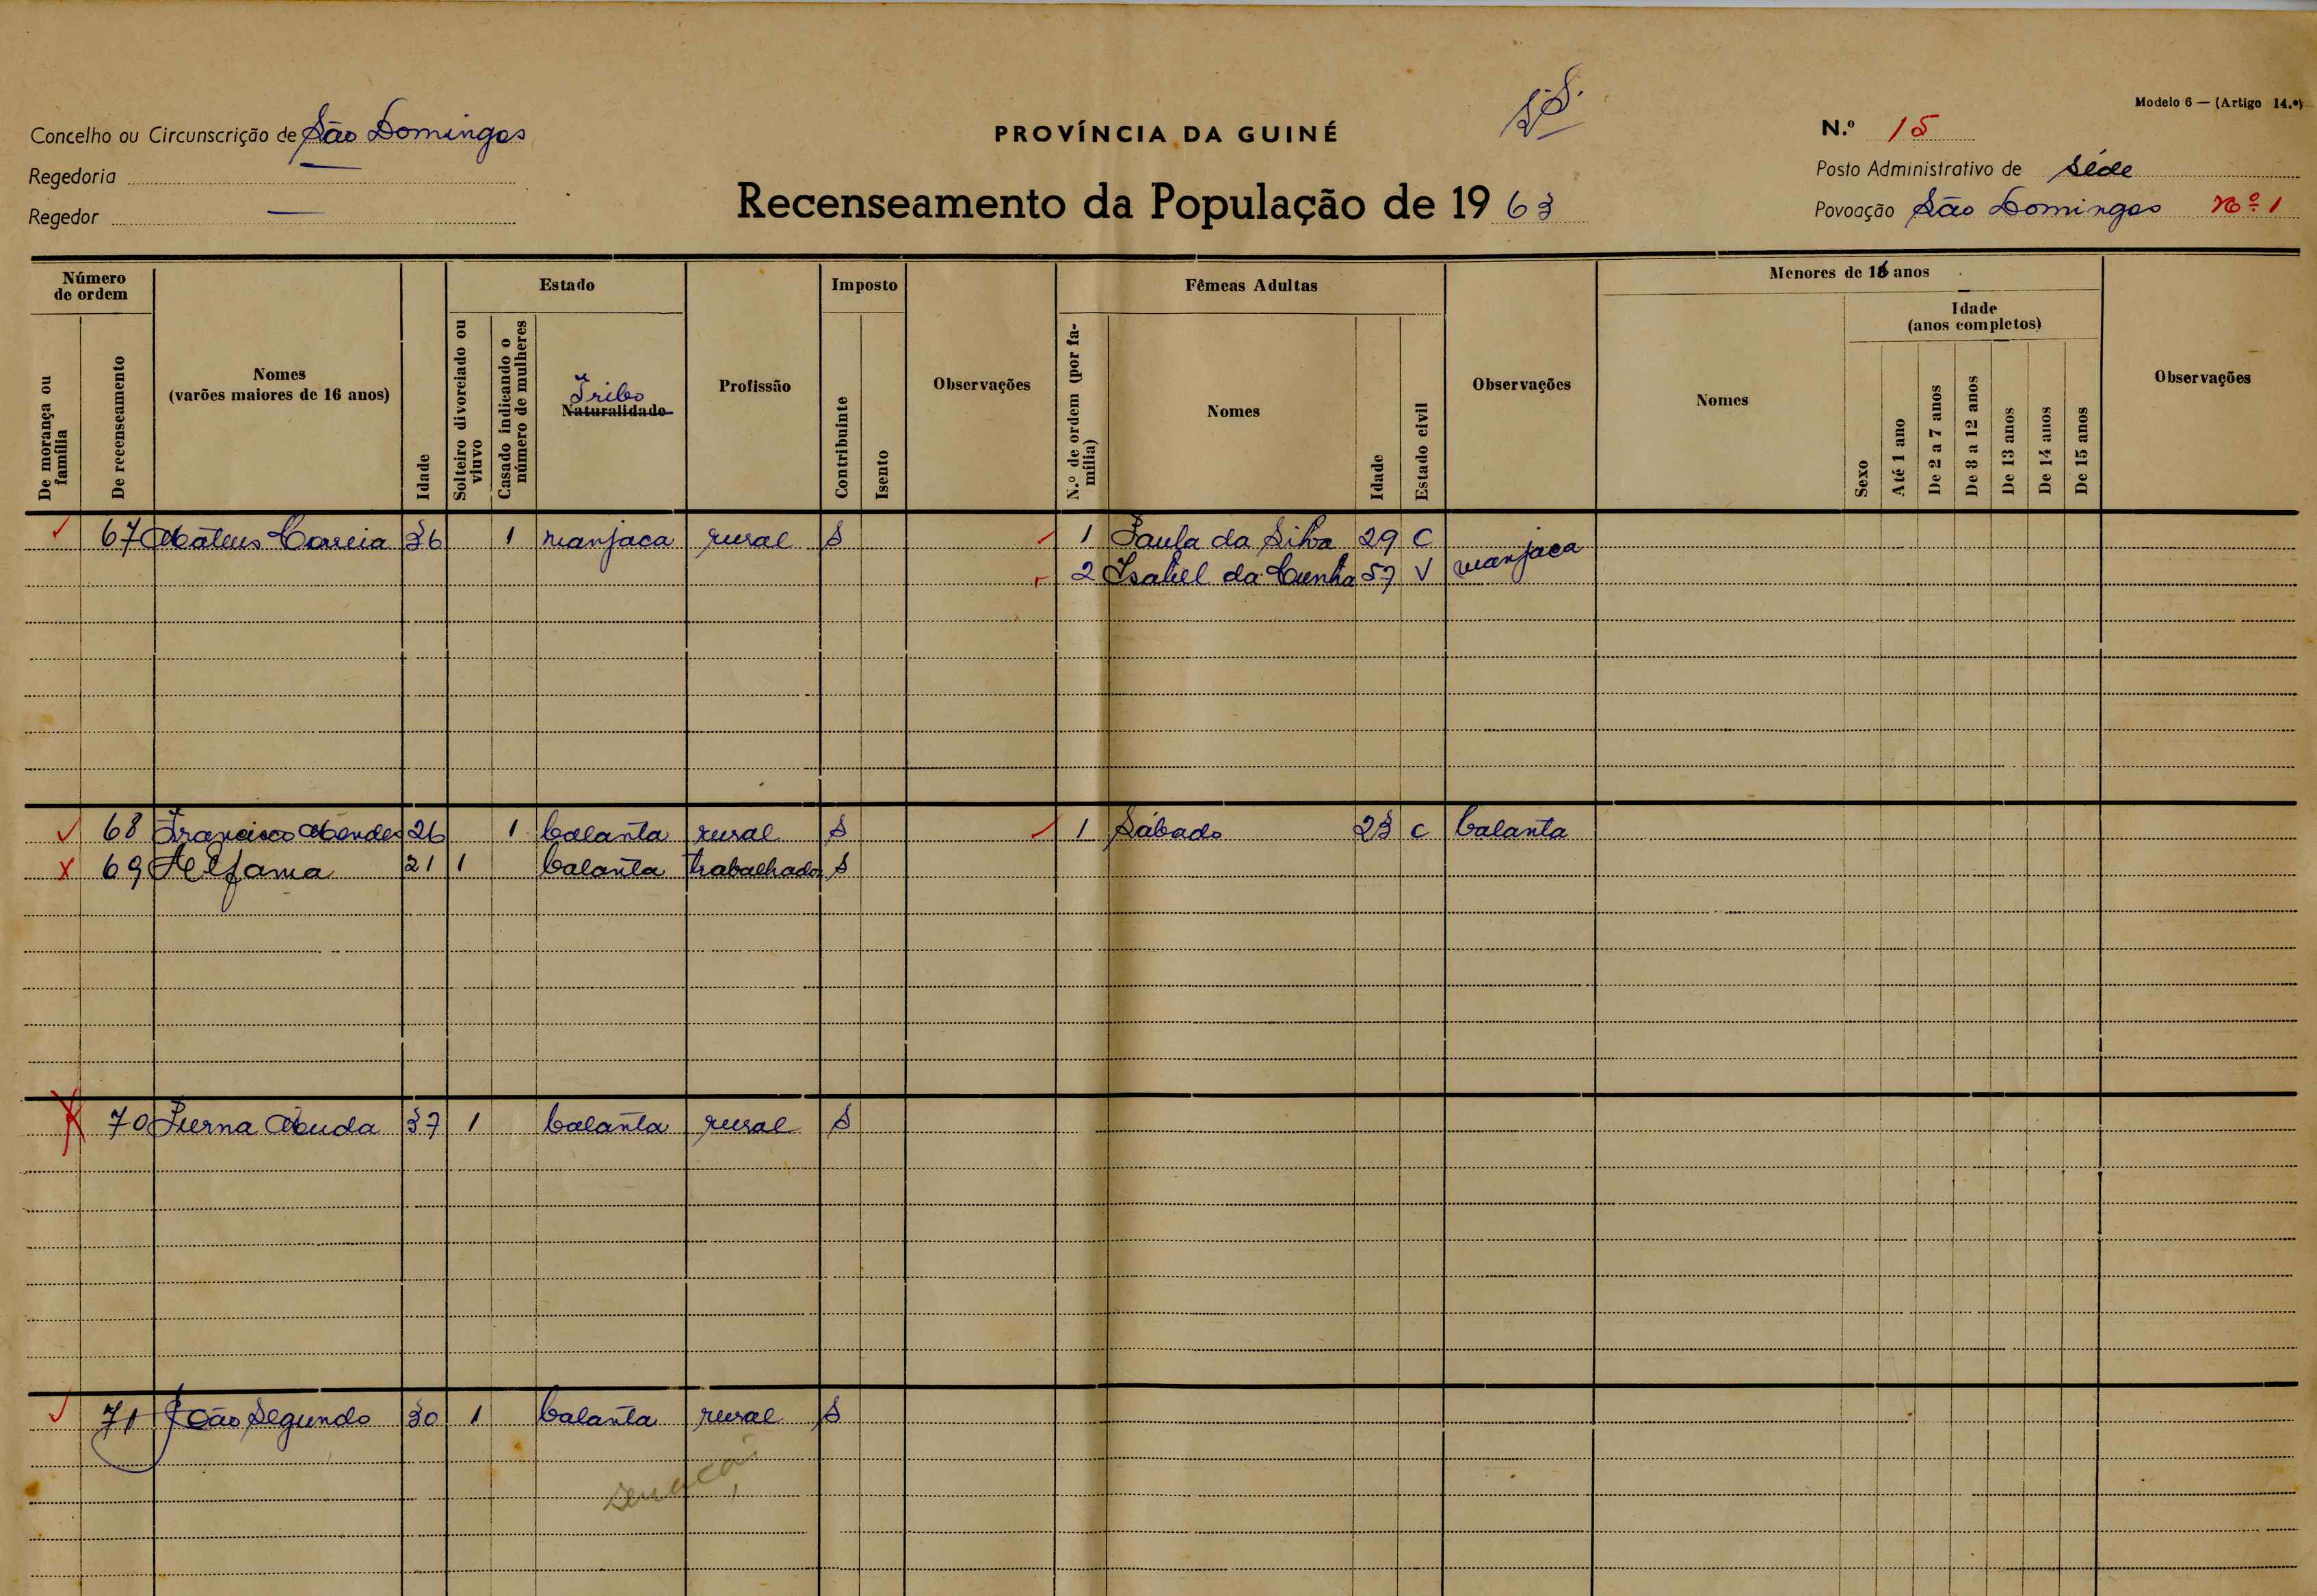 Modelo 6 — (Artigo 14.º)
Concelho ou Circunscrição de São Domingos
PROVÍNCIA DA GUINÉ
N.º 15
Regedoria —
Posto Administrativo de Séde
Regedor —
Recenseamento da População de 1963
Povoação São Domingos Nº 1
Número de ordem
De morança ou família
De recenseamento
Nomes
(varões maiores de 16 anos)
Idade
Estado
Solteiro divorciado ou viuvo
Casado indicando o número de mulheres
Tribo
Naturalidade
Profissão
Imposto
Contribuinte
Isento
Observações
Fêmeas Adultas
N.º de ordem (por família)
Nomes
Idade
Estado civil
Observações
Menores de 16 anos
Nomes
Sexo
Idade
(anos completos)
Até 1 ano
De 2 a 7 anos
De 8 a 12 anos
De 13 anos
De 14 anos
De 15 anos
Observações
67 Mateus Correia 36 1 manjaca rural S 1 Paula da Silva 29 C manjaca
2 Isabel da Cunha 57 V
68 Francisco Mendes 26 1 balanta rural S 1 Sábado 23 C balanta
69 Alfama 21 1 balanta trabalhador S
70 37 1 balanta rural S
71 João Segundo 30 1 balanta rural S